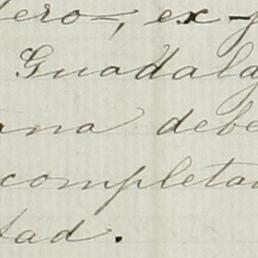 dero, ex-
Guadala
ana debe
completa
tad.